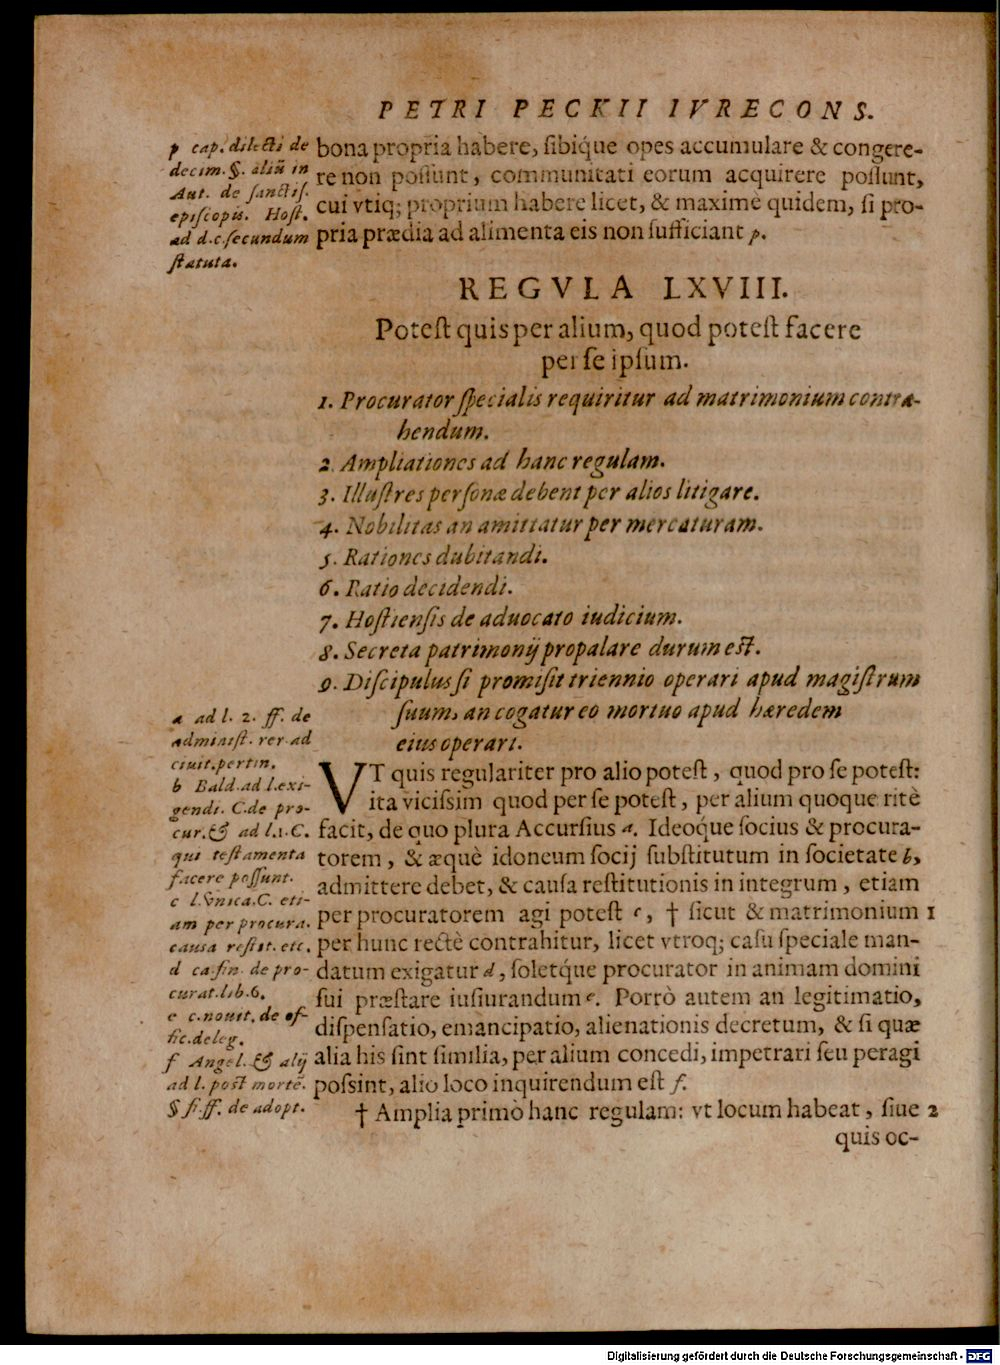 PETRI PECKII IVRECONS.
bona propria habere, ſibiq́ue opes accumulare & congere-
re non poſſunt, communitati eorum acquirere poſſunt,
cui vtiq; proprium habere licet, & maximè quidem, ſi pro-
pria prædia ad alimenta eis non ſufficiant p.
p cap. dilecti de
decim. §. aliũ in
Aut. de ſanctiſ.
epiſcopis. Hoſt.
ad d.c. ſecundum
ſtatuta.
REGVLA LXVIII.
Poteſt quis per alium, quod poteſt facere
per ſe ipſum.
1. Procurator ſpecialis requiritur ad matrimonium contra-
hendum.
2. Ampliationes ad hanc regulam.
3. Illuſtres perſonæ debent per alios litigare.
4. Nobilitas an amittatur per mercaturam.
5. Rationes dubitandi.
6. Ratio decidendi.
7. Hoſtienſis de aduocato iudicium.
8. Secreta patrimonij propalare durum eſt.
9. Diſcipulus ſi promiſit triennio operari apud magiſtrum
ſuum, an cogatur eo mortuo apud hæredem
eius operari.
VT quis regulariter pro alio poteſt, quod pro ſe poteſt:
ita viciſsim quod per ſe poteſt, per alium quoque ritè
facit, de quo plura Accurſius a. Ideoq́ue ſocius & procura-
torem, & æquè idoneum ſocij ſubſtitutum in ſocietate b,
admittere debet, & cauſa reſtitutionis in integrum, etiam
per procuratorem agi poteſt c, † ſicut & matrimonium 1
per hunc rectè contrahitur, licet vtroq; caſu ſpeciale man-
datum exigatur d, ſoletq́ue procurator in animam domini
ſui præſtare iuſiurandum e. Porrò autem an legitimatio,
diſpenſatio, emancipatio, alienationis decretum, & ſi quæ
alia his ſint ſimilia, per alium concedi, impetrari ſeu peragi
poſsint, alio loco inquirendum eſt f.
† Amplia primò hanc regulam: vt locum habeat, ſiue 2
quis oc-
a ad l. 2. ff. de
adminiſt. rer. ad
ciuit. pertin.
b Bald. ad l. exi-
gendi. C. de pro-
cur. & ad l.1. C.
qui teſtamenta
facere poſſunt.
c l. vnica. C. eti-
am per procura.
cauſa reſtit. etc.
d ca. fin. de pro-
curat. lib. 6.
e c. nouit. de of-
fic. deleg.
f Angel. & alij
ad l. poſt mortẽ.
§ fi. ff. de adopt.
Digitalisierung gefördert durch die Deutsche Forschungsgemeinschaft - DFG